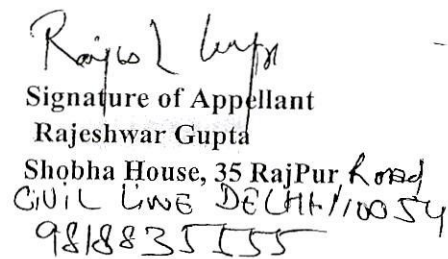 Signature of Appellant
Rajeshwar Gupta
Shobha House, 35 RajPur Road
CIVIL LINE DELHI-110054
9818835555